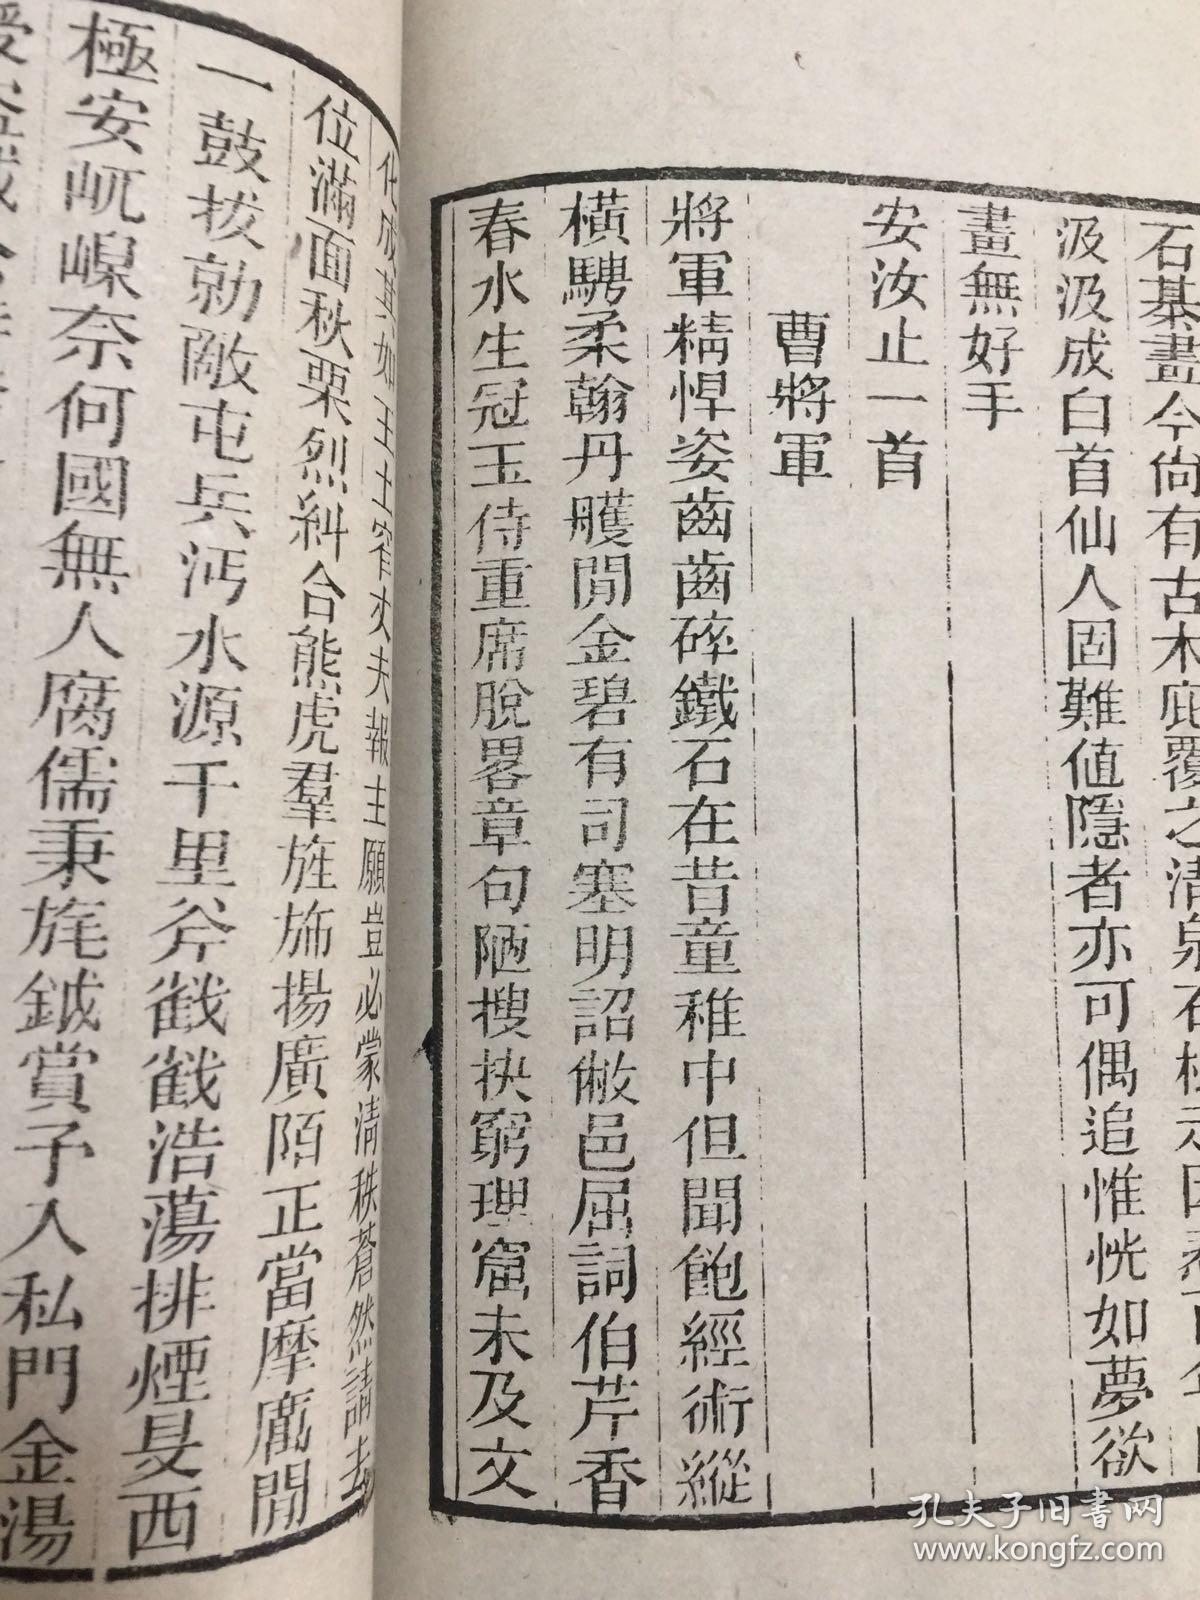 石棊畫今尚有古木庇覆之清泉石
汲汲成白首仙人固難値隱者亦可偶追惟恍如夢欲
畫無好手
安汝止一首
曹將軍
將軍精悍姿齒齒碎鐵石在昔童稚中但聞飽經術縱
橫騁柔翰丹雘閒金碧有司塞明詔敝邑屈詞伯芹香
春水生冠玉侍重席脫畧章句陋搜抉窮理窟未及文
化成其如王士窄丈夫報主願豈必蒙淸秩蒼然請去
位滿面秋栗烈糾合熊虎羣旌斾揚廣陌正當摩厲閒
一鼓拔勍敵屯兵沔水源千里斧戳戳浩蕩排煙旻西
極安岏嵲奈何國無人腐儒秉旄鉞賞予入私門金湯
孔夫子旧书网
www.kongfz.com